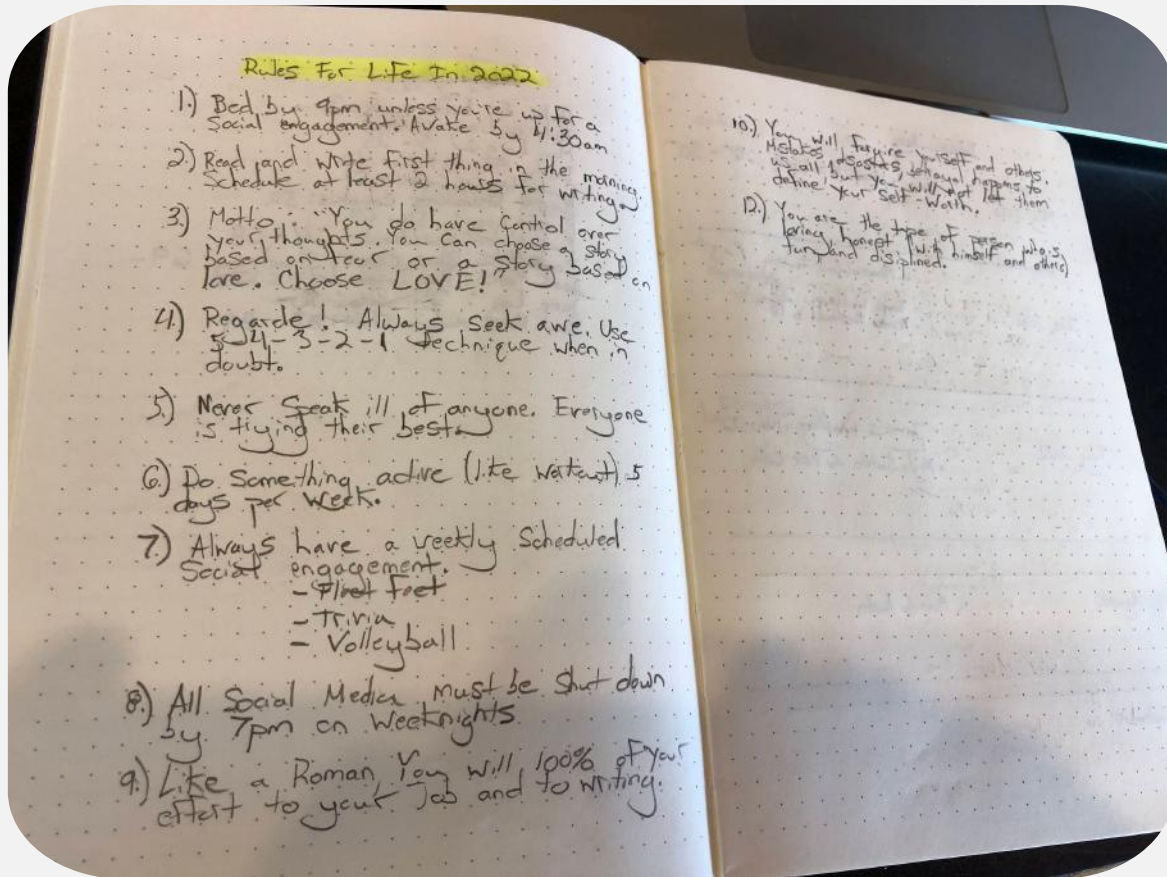 Rules For Life In 2022
1.) Bed by 9pm unless you're up for a
Social engagement. Awake by 4:30am
2.) Read and write first thing in the morning.
Schedule at least 2 hours for writing.
3.) Motto: "You do have Control over
your thoughts. You Can choose a story
based on fear or a story based on
love. Choose LOVE!"
4.) Regarde! Always Seek awe. Use
5-4-3-2-1 technique when in
doubt.
5.) Never Speak ill of anyone. Everyone
is trying their best.
6.) Do Something active (like workout) 5
days per week.
7.) Always have a weekly Scheduled
Social engagement.
- Fleet Feet
- Trivia
- Volleyball
8.) All Social Media must be Shut down
by 7pm on Weeknights
9.) Like a Roman, You will 100% of your
effort to your Job and to writing.
10.) You will forgive yourself and others.
Mistakes, disasters, betrayal happens to
us all but you will not let them
define your Self-Worth.
12.) You are the type of person who is
loving, honest (with himself and others)
fun, and disiplined.